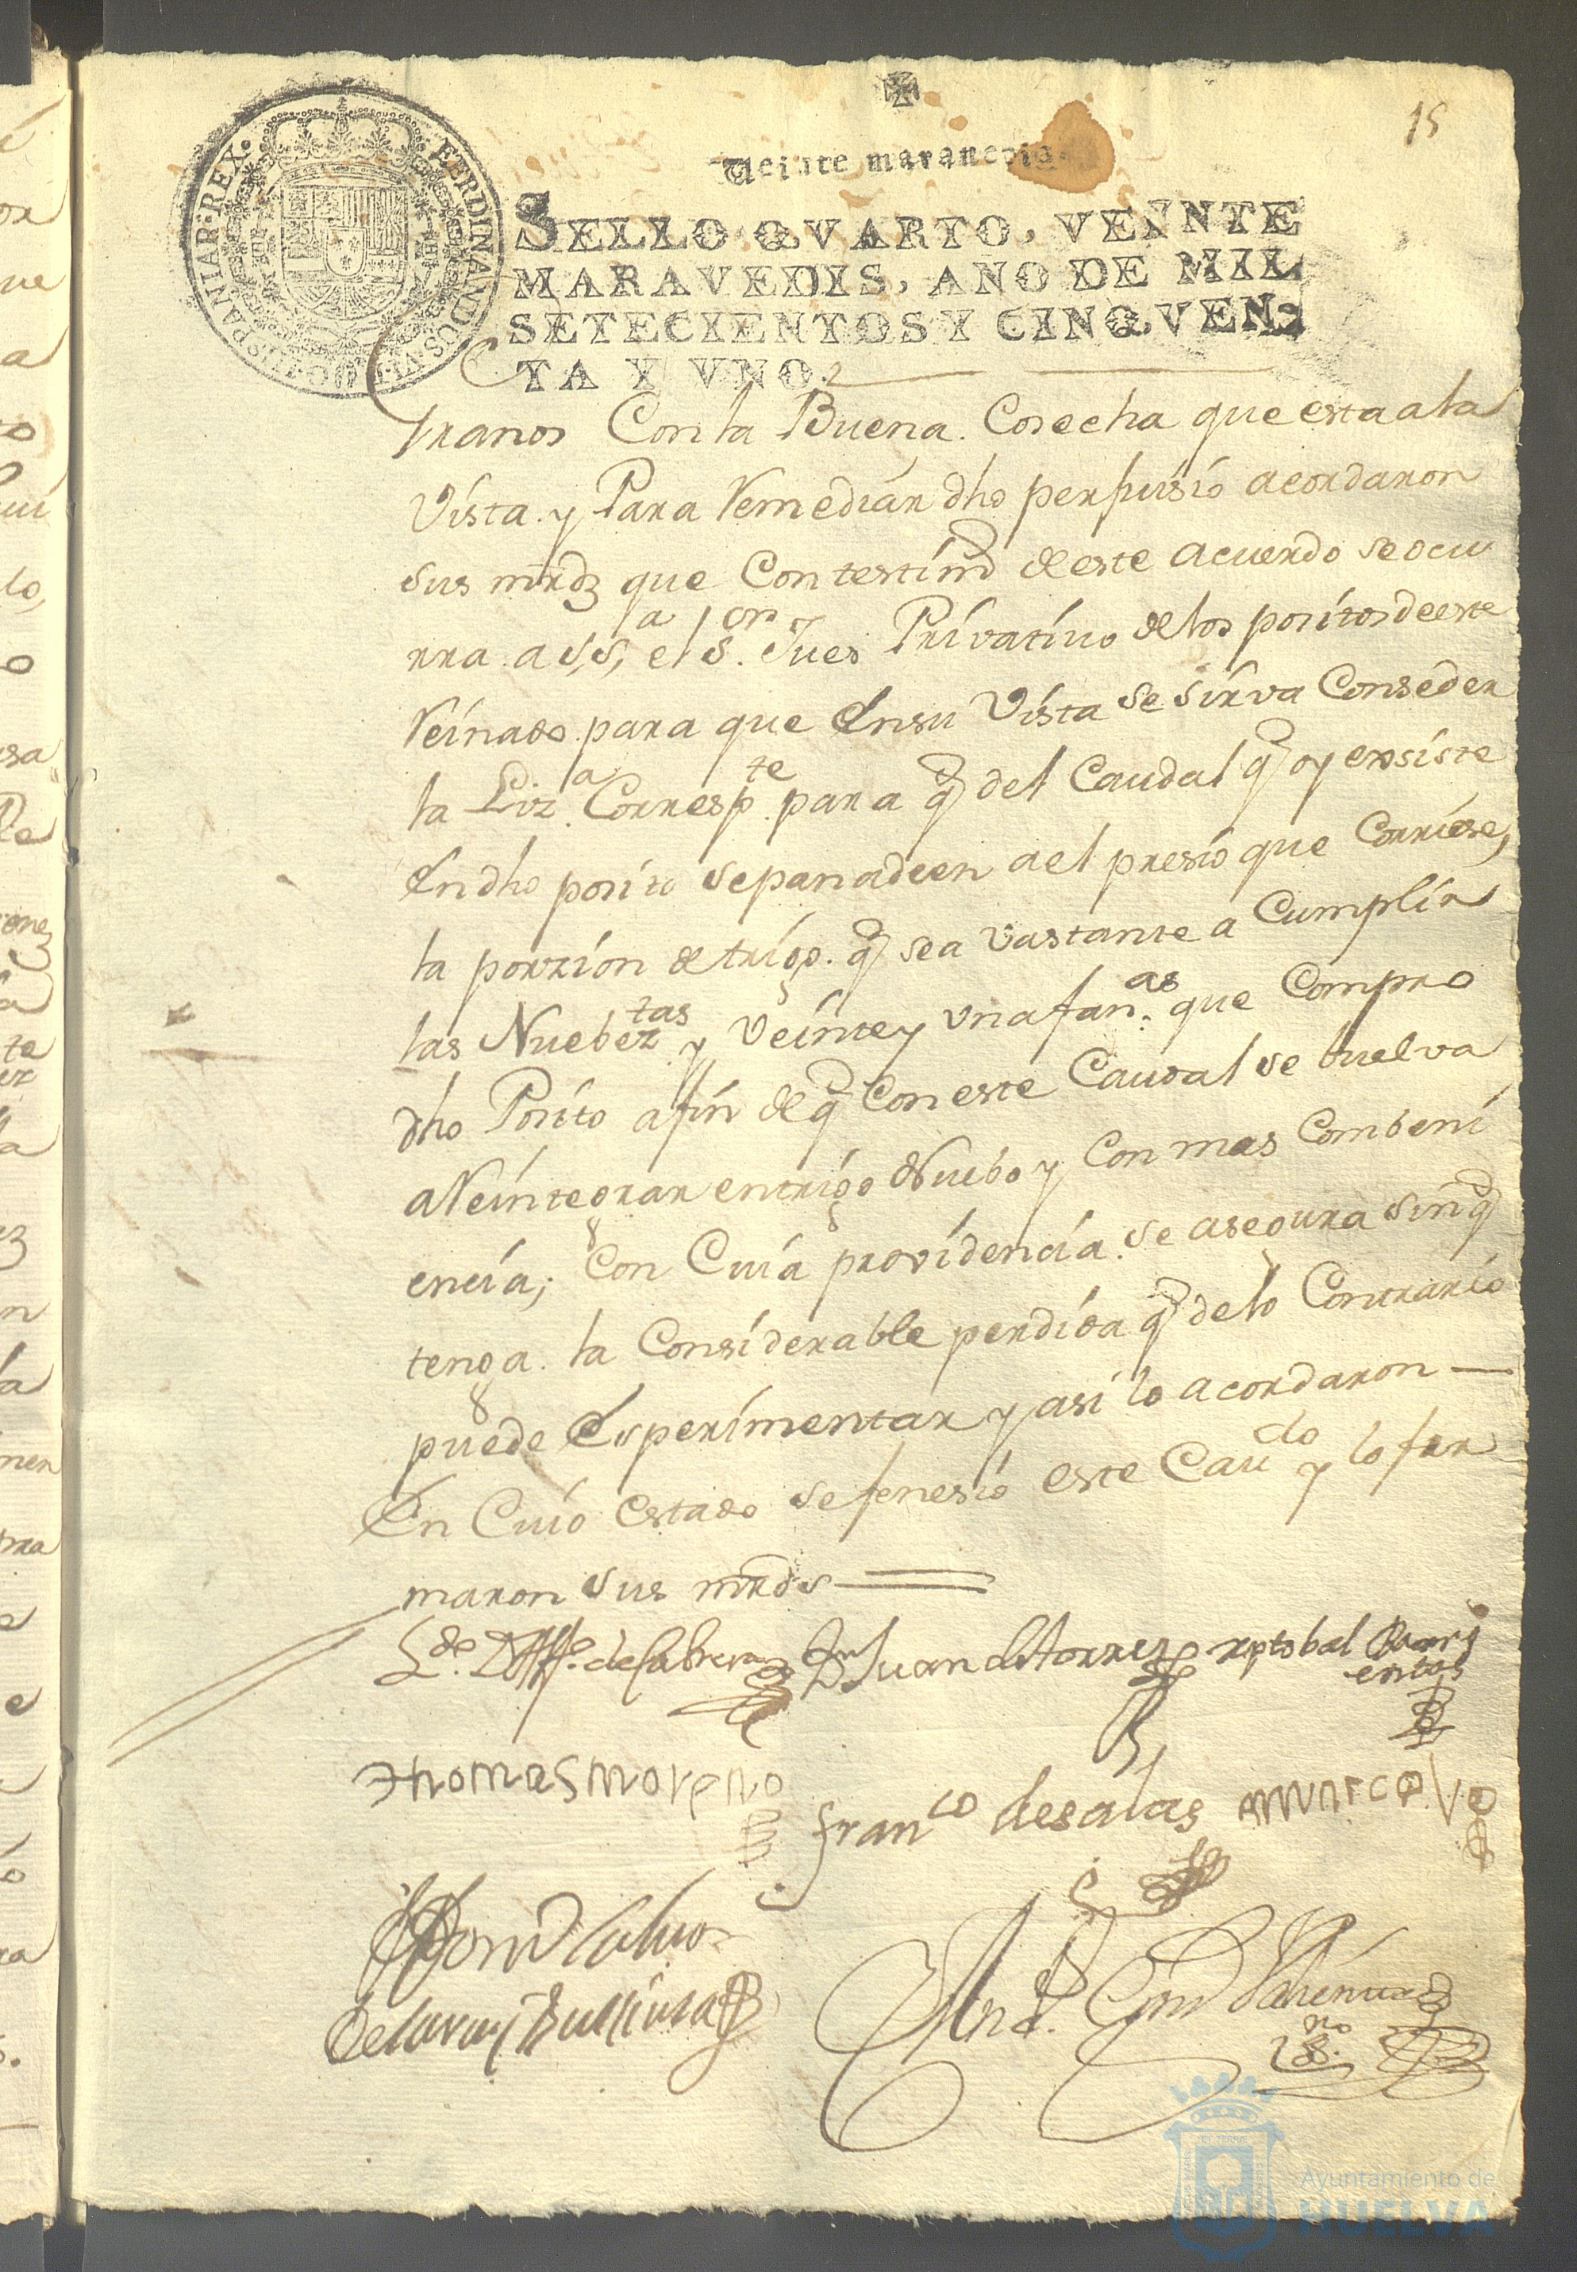 15
Veinte maravedis
SELLO QVARTO, VEINTE
MARAVEDIS, AÑO DE MIL
SETECIENTOS Y CINQVEN-
TA Y VNO.
FERDINANDUS VI D G HISPANIAR REX
Granos Con la Buena Cosecha que esta a la
Vista y Para Remediar dho perjuisio acordaron
sus mrdz que Con testimo de este acuerdo se ocu
rra a S,S,a el Sor. Jues Privativo de los positos de este
Reinado para que En su Vista se sirva Conseder
la Liza. Correspte. para q del Caudal q oy exsiste
En dho posito se panadeen a el presio que Corriese,
la porzion de trigo. q sea vastante a Cumplir
las Nuebeztas y Veinte y Una fanas. que Compro
dho Posito a fin de q Con este Caudal se buelva
a Reintegrar en trigo Nuebo y Con mas Combeni
encia; Con Cuia providencia se asegura sin q
tenga la Considerable perdida q de lo Contrario
puede Esperimentar y asi lo acordaron
En Cuio estado se fenesio este Caudo y lo fir
maron sus mrds
Ldo. D Alfo. de Cabrera Dn Juan de torrez xptobal Barri
entos
Thomas Moreno
Franco de salas
Ayuntamiento de
HUELVA